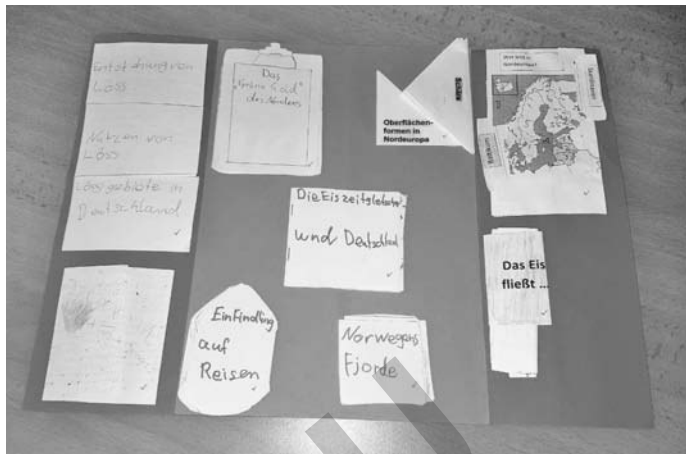 Entstehung von
Löss
Nutzen von
Löss
Lössgebiete in
Deutschland
Das
"Grüne Gold"
des Nordens
Oberflächen-
formen in
Nordeuropa
Die Eiszeitgletscher
und Deutschland
Ein Findling
auf
Reisen
Norwegens
Fjorde
Das Eis
fließt ...